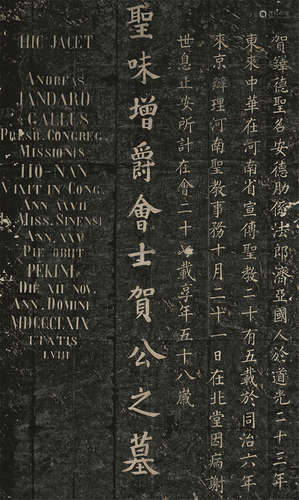 賀鐸德聖名安德肋係法郎濟亞國人於道光二十三年
東來中華在河南省宣傳聖教二十有五載於同治六年
來京辦理河南聖教事務十月二十一日在北堂因病謝
世息止安所計在會二十七載享年五十八歲
聖味增爵會士賀公之墓
HIC JACET
ANDREAS
JANDARD
GALLUS
PRESB. CONGREG.
MISSIONIS
HO-NAN
VIXIT IN CONG.
ANN XXVII
IN MISS. SINENSI
ANN. XXV
PIE OBIIT
PEKINI
DIE XII NOV.
ANN. DOMINI
MDCCCLXIX
ETATIS
LVIII